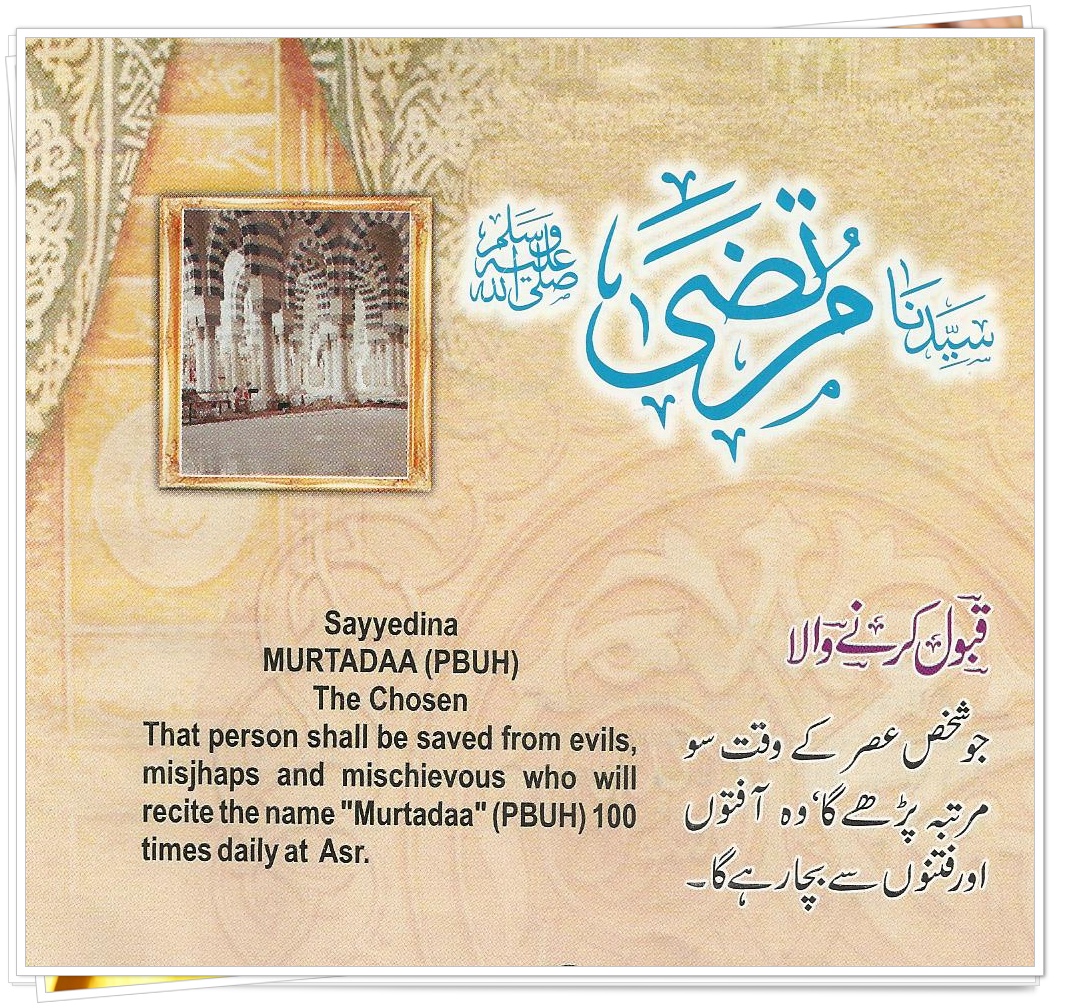 سَيِّدُنَا مُرْتَضَى صلى الله عليه وسلم
Sayyedina
MURTADAA (PBUH)
The Chosen
That person shall be saved from evils,
misjhaps and mischievous who will
recite the name "Murtadaa" (PBUH) 100
times daily at Asr.
قبول کرنے والا
جو شخص عصر کے وقت سو
مرتبہ پڑھے گا، وہ آفتوں
اور فتنوں سے بچا رہے گا۔